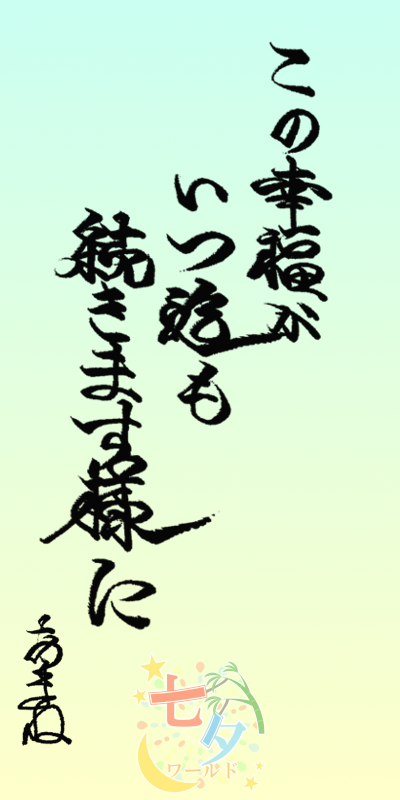 この幸福が
いつ迄も
続きます様に
七夕
ワールド